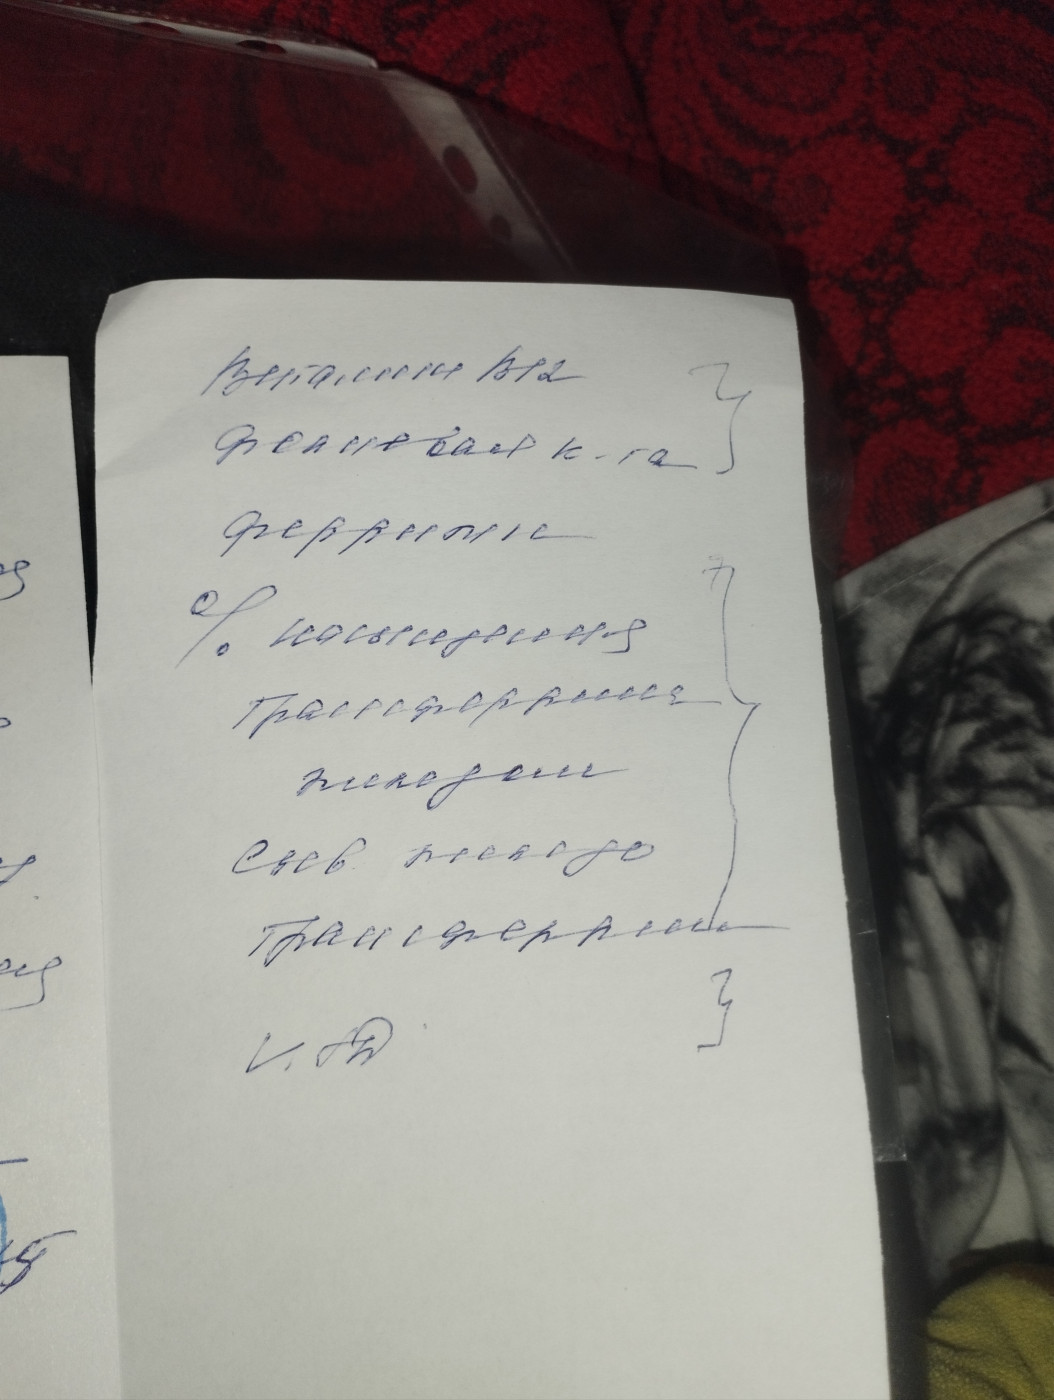 Витамин В12
Фолиевая к-та
Ферритин
% насыщения
Трансферрина
железом
Сыв. железо
Трансферрин